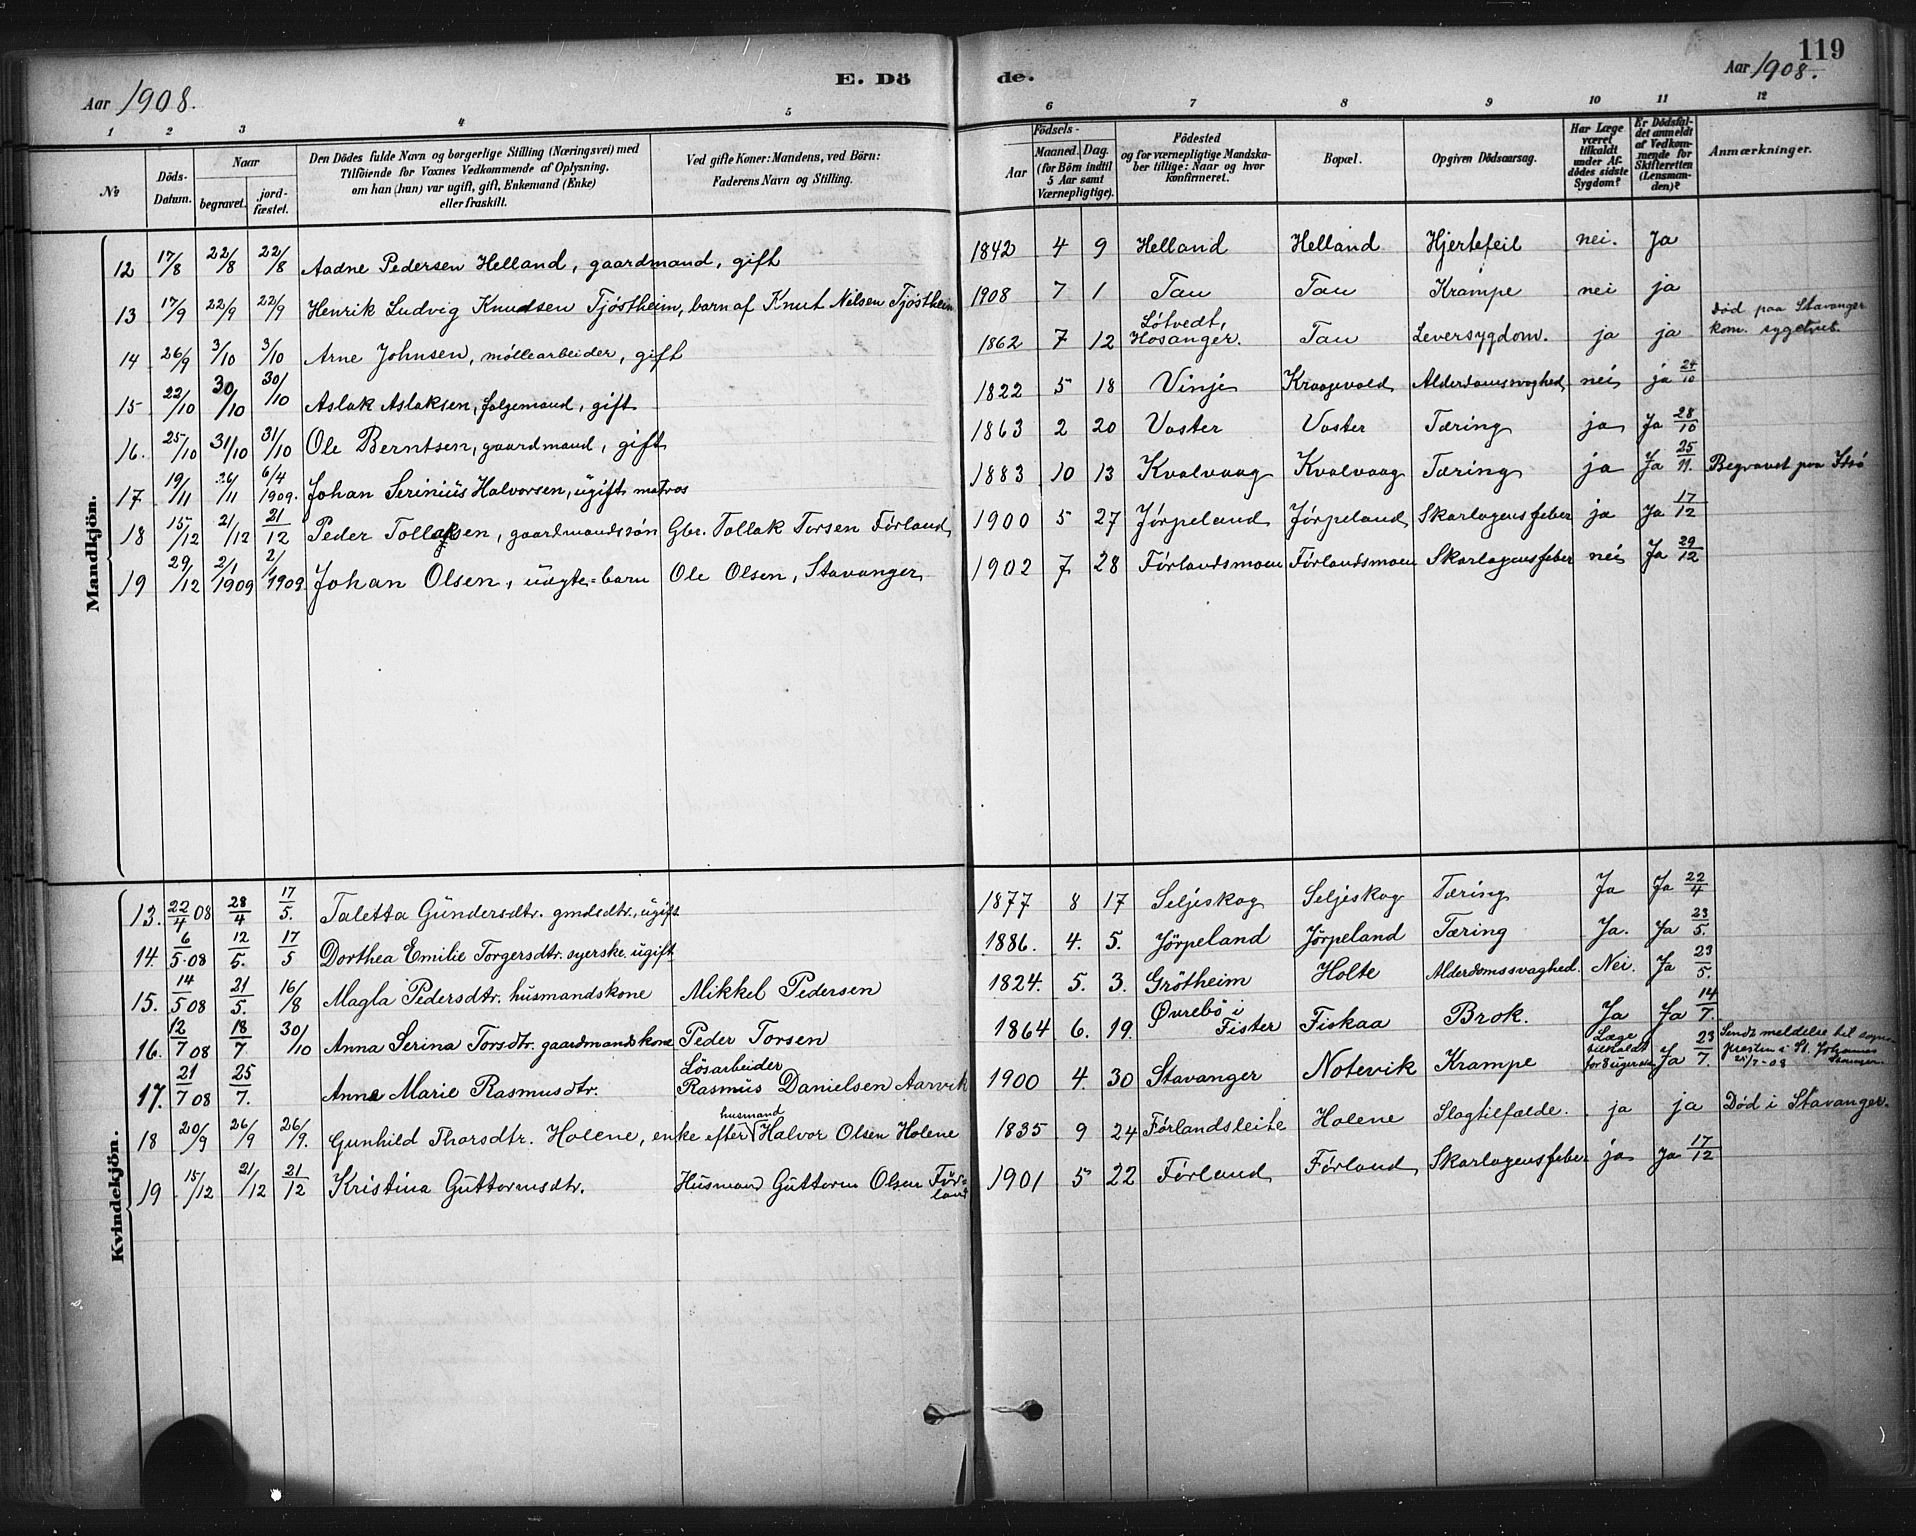 119
E. Dö de.
Aar 1908. Aar 1908.
1 2 3 4 5 6 7 8 9 10 11 12
No
Döds-Datum.
Naar begravet. jordfæstet.
Den Dödes fulde Navn og borgerlige Stilling (Næringsvei) med Tilföiende for Voxnes Vedkommende af Oplysning, om han (hun) var ugift, gift, Enkemand (Enke) eller fraskilt.
Ved gifte Koner: Mandens, ved Börn: Faderens Navn og Stilling.
Födsels- Aar Maaned. Dag. (for Börn indtil 5 Aar samt Værnepligtige).
Födested og for værnepligtige Mandskaber tillige: Naar og hvor konfirmeret.
Bopæl.
Opgiven Dödsaarsag.
Har Læge været tilkaldt under Afdödes sidste Sygdom?
Er Dödsfaldet anmeldt af Vedkommende for Skifteretten (Lensmanden)?
Anmærkninger.
Mandkjön.
12 17/8 22/8 22/8 Aadne Pedersen Helland, gaardmand, gift 1842 4 9 Helland Helland Hjertefeil nei. Ja
13 17/9 22/9 22/9 Henrik Ludvig Knudsen Tjöstheim, barn af Knut Nilsen Tjöstheim 1908 7 1 Tau Tau Krampe nei ja
14 26/9 3/10 3/10 Arne Johnsen, möllearbeider, gift 1862 7 12 Løtvedt, Hosanger. Tau Leversygdom. ja ja Død paa Stavanger kom. sygehus.
15 22/10 30/10 30/10 Aslak Aslaksen, følgemand, gift 1822 5 18 Vinje Kraagevold Alderdomssvaghed nei ja 24/10
16. 25/10 31/10 31/10 Ole Berntsen, gaardmand, gift 1863 2 20 Voster Voster Tæring ja Ja 28/10
17 19/11 26/11 6/4 1909. Johan Serinius Halvorsen, ugift matros 1883 10 13 Kvalvaag Kvalvaag Tæring ja Ja 25/11. Begravet paa
18 15/12 21/12 21/12 Peder Tollaksen, gaardmandssøn Gbr. Tollak Torsen Førland 1900 5 27 Jørpeland Jørpeland Skarlagensfeber ja Ja 17/12
19 29/12 2/1 1909 2/1 1909. Johan Olsen, uægte-barn Ole Olsen, Stavanger 1902 7 28 Førlandsmoen Førlandsmoen Skarlagensfeber nei Ja 29/12
Kvindekjön.
13. 22/4 08 28/4 17/5. Taletta Gundersdtr. gmdsdtr., ugift 1877 8 17 Seljeskog Seljeskog Tæring Ja Ja 22/4
14. 6/5.08 12/5. 17/5 Dorthea Emilie Torgersdtr. syerske. ugift 1886. 4. 5. Jörpeland Jörpeland Tæring Ja. Ja 23/5.
15. 14/5 08 21/5. 16/8 Magla Pedersdtr. husmandskone Mikkel Pedersen 1824. 5. 3. Grötheim Holte Alderdomssvaghed. Nei. Ja 23/5.
16. 12/7 08 18/7 30/10 Anna Serina Torsdtr. gaardmandskone Peder Torsen 1864 6. 19. Øvrebö i Fister Fiskaa Brok. Ja Ja 14/7.
17. 21/7 08 25/7. Anna Marie Rasmusdtr. Lösarbeider Rasmus Danielsen Aarvik 1900 4. 30 Stavanger Notevik Krampe Læge tilkaldt Ja 23/7. Sendt meldelse til sogne præsten i St. Johannes Stavanger 25/7-08
18 20/9 26/9 26/9. Gunhild Thorsdtr. Holene, enke efter husmand Halvor Olsen Holene 1835 9 24 Førlandsleite Holene Slagtilfælde. ja ja Død i Stavanger.
19 15/12 21/12 21/12 Kristina Guttormsdtr. Husmand Guttorm Olsen Førland 1901 5 22 Førland Førland Skarlagensfeber ja Ja 17/12